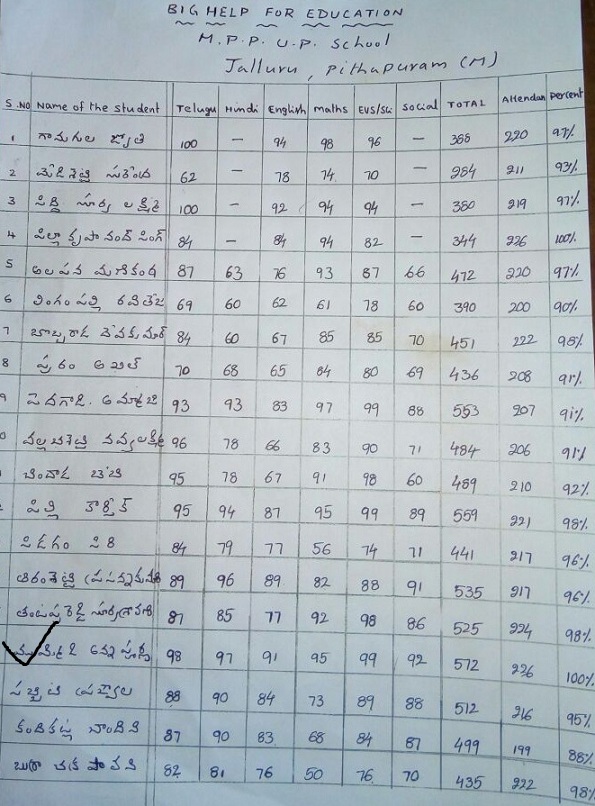 BIG HELP FOR EDUCATION
M.P.P. U.P. School
Jalluru, Pithapuram (M)
S.NO Name of the student Telugu Hindi English maths EVS/Sci Social TOTAL Attendan percent
1 గానుగుల జ్యోతి 100 — 94 98 96 — 388 220 97%
2 62 — 78 74 70 — 284 211 93%
3 పిర్ది సూర్య లక్ష్మి 100 — 92 94 94 — 380 219 97%
4 పిల్లా కృపానంద్ సింగ్ 84 — 84 94 82 — 344 226 100%
5 మణికంఠ 87 63 76 93 87 66 472 220 97%
6 లింగంపల్లి రవితేజ 69 60 62 61 78 60 390 200 90%
7 84 60 67 85 85 70 451 222 98%
8 70 68 65 84 80 69 436 208 91%
9 93 93 83 97 99 88 553 207 91%
0 నవ్యలక్ష్మి 96 78 66 83 90 71 484 206 91%
95 78 67 91 98 60 489 210 92%
పిల్లి కార్తీక్ 95 94 87 95 99 89 559 221 98%
84 79 77 56 74 71 441 217 96%
89 96 89 82 88 91 535 217 96%
87 85 77 92 98 86 525 224 98%
98 97 91 95 99 92 572 226 100%
88 90 84 73 89 88 512 216 95%
కందికట్ల చాందిని 87 90 83 68 84 87 499 199 88%
82 81 76 50 76 70 435 222 98%